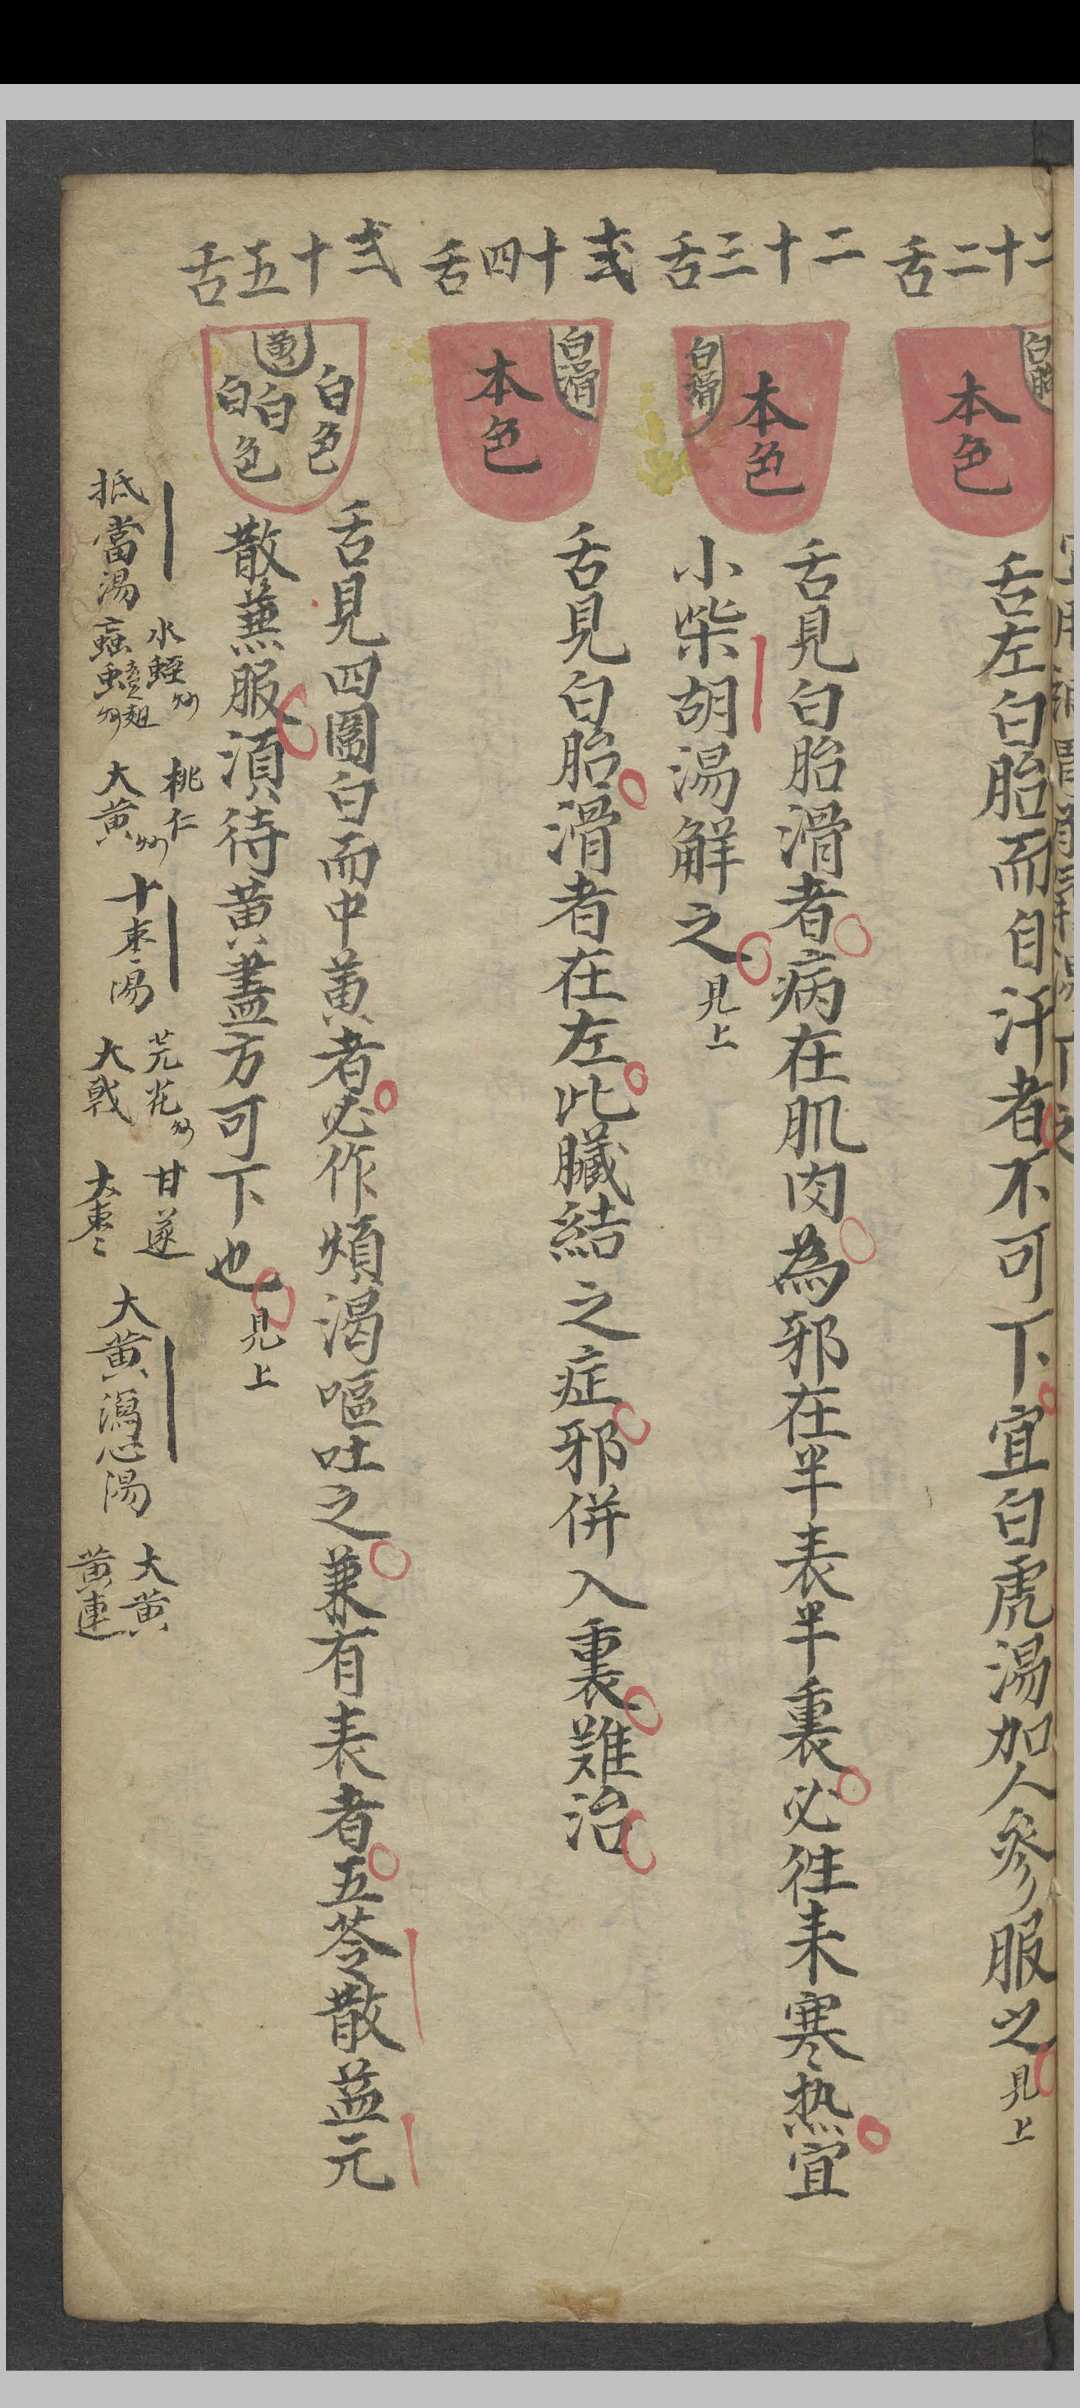 二十二舌
白胎
本色
舌左白胎而自汗者不可下宜白虎湯加人參服之見上
二十三舌
白滑
本色
舌見白胎滑者病在肌肉為邪在半表半裏必徃来寒热宜
小柴胡湯解之見上
弍十四舌
白滑
本色
舌見白胎滑者在左此臟結之症邪併入裏難治
弍十五舌
黄
白色
白
白色
舌見四圍白而中黄者必作煩渴嘔吐之兼有表者五苓散益元
散蕪服須待黄盡方可下也見上
抵當湯
水蛭炒
桃仁
大黄炒
十枣湯
芫花炒
甘遂
大戟
大枣
大黄瀉心湯
大黄
黄連